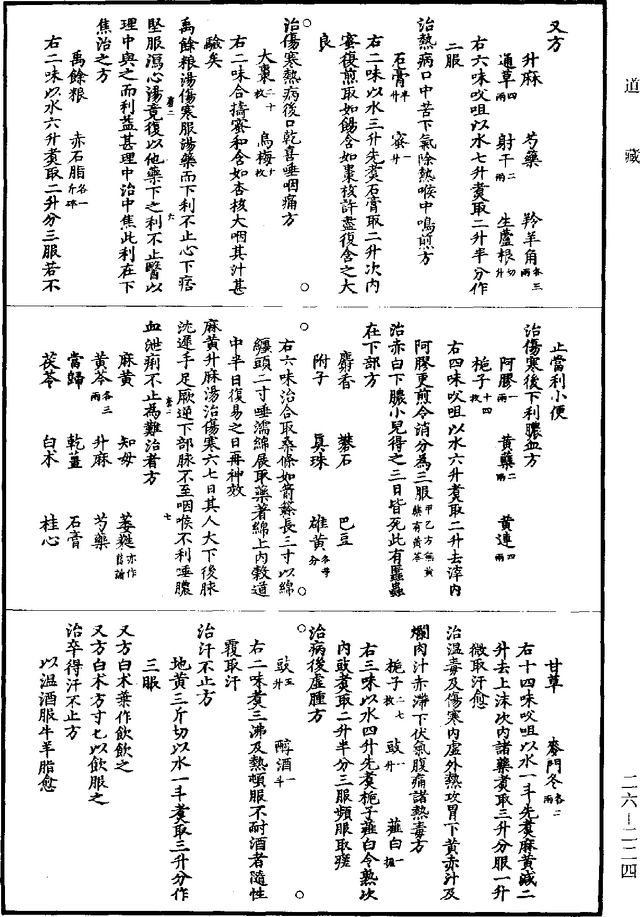 道藏
又方
升麻　芍藥　羚羊角各三兩
通草四兩　射干二兩　生蘆根切一升
右六味㕮咀以水七升煑取二升半分作
三服
治熱病口中苦下氣除熱喉中鳴煎方
石膏半斤　蜜一升
右二味以水三升先煑石膏取二升次內
蜜復煎取如餳含如棗核許盡復含之大
良
治傷寒熱病後口乾喜唾咽痛方
大棗二十枚　烏梅十枚
右二味合擣蜜和含如杏核大咽其汁甚
驗矣
禹餘粮湯傷寒服湯藥而下利不止心下痞
堅服瀉心湯竟復以他藥下之利不止醫以
理中與之而利益甚理中治中焦此利在下
焦治之方
禹餘粮　赤石脂各一斤碎
右二味以水六升煑取二升分三服若不
止當利小便
治傷寒後下利膿血方
阿膠一兩　黃蘗二兩　黃連四兩
梔子十四枚
右四味㕮咀以水六升煑取二升去滓內
阿膠更煎令消分為三服甲乙方無黃蘗有黃芩
治赤白下膿小兒得之三日皆死此有䘌蟲
在下部方
麝香　礬石　巴豆
附子　真珠　雄黃各等分
右六味治合取桑條如箭簳長三寸以綿
纏頭二寸唾濡綿展取藥著綿上內榖道
中半日復易之日再神效
麻黃升麻湯治傷寒六七日其人大下後脉
沈遲手足厥逆下部脉不至咽喉不利唾膿
血泄痢不止為難治者方
麻黃　知母　萎蕤
黃芩各三兩　升麻　芍藥
當歸　乾薑　石膏
茯苓　白术　桂心
甘草　麥門冬各二兩
右十四味㕮咀以水一斗先煑麻黃減二
升去上沫次內諸藥煑取三升分服一升
微取汗愈
治温毒及傷寒內虛外熱攻胃下黃赤汁及
爛肉汁赤滯下伏氣腹痛諸熱毒方
梔子二七枚　豉一升　薤白一握
右三味以水四升先煑梔子薤白令熟次
內豉煑取二升半分三服頻服取瘥
治病後虛腫方
豉五升　醇酒一斗
右二味煑三沸及熱頓服不耐酒者隨性
覆取汗
治汗不止方
地黃三斤切以水一斗煑取三升分作
三服
又方白术葉作飲飲之
又方白术方寸匕以飲服之
治卒得汗不止方
以温酒服牛羊脂愈
二六—二二四